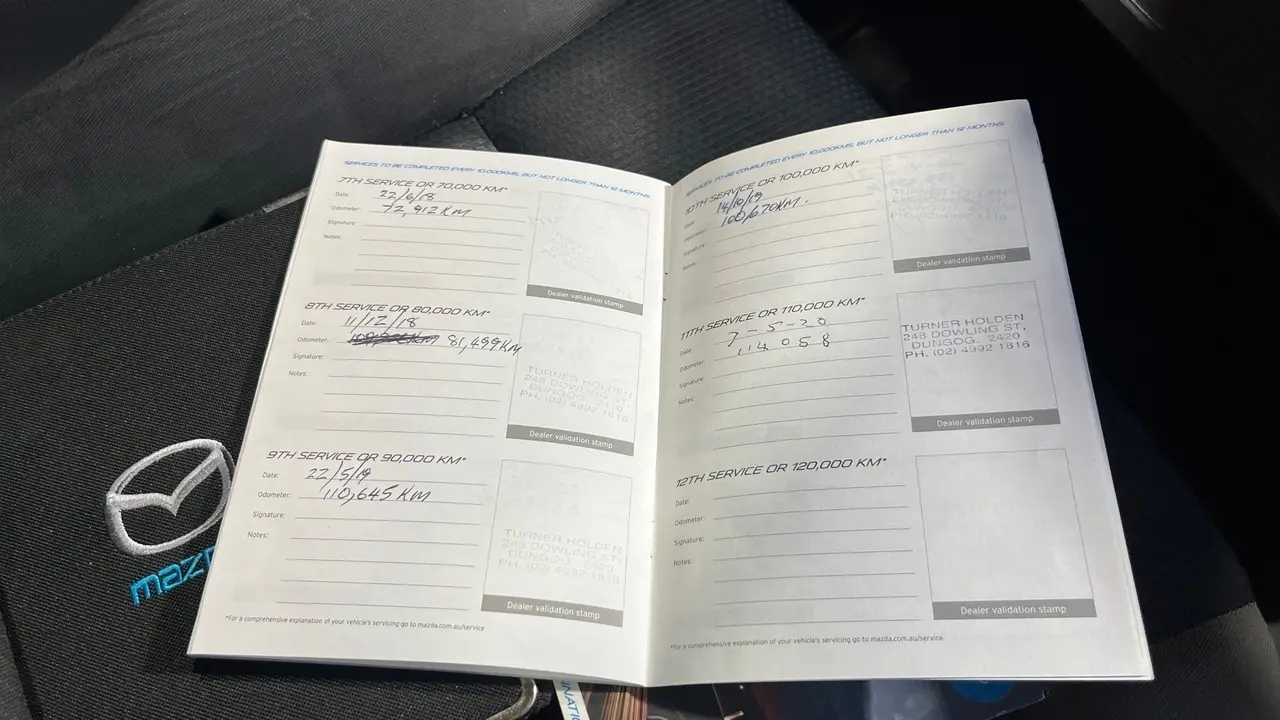 SERVICES TO BE COMPLETED EVERY 10,000KMS, BUT NOT LONGER THAN 12 MONTHS
7TH SERVICE OR 70,000 KM*
Date: 22/6/18
Odometer: 72,912 KM
Signature:
Notes:
Dealer validation stamp
8TH SERVICE OR 80,000 KM*
Date: 11/12/18
Odometer: 81,499 KM
Signature:
Notes:
TURNER HOLDEN
248 DOWLING ST,
DUNGOG. 2420
PH. (02) 4992 1816
Dealer validation stamp
9TH SERVICE OR 90,000 KM*
Date: 22/5/19
Odometer: 110,645 KM
Signature:
Notes:
TURNER HOLDEN
248 DOWLING ST,
DUNGOG. 2420
PH. (02) 4992 1816
Dealer validation stamp
*For a comprehensive explanation of your vehicle's servicing go to mazda.com.au/service
SERVICES TO BE COMPLETED EVERY 10,000KMS, BUT NOT LONGER THAN 12 MONTHS
10TH SERVICE OR 100,000 KM*
Date: 14/10/19
Odometer: 100,670KM.
Signature:
Notes:
TURNER HOLDEN
Dealer validation stamp
11TH SERVICE OR 110,000 KM*
Date: 7-5-20
Odometer: 114058
Signature:
Notes:
TURNER HOLDEN
248 DOWLING ST,
DUNGOG. 2420
PH. (02) 4992 1816
Dealer validation stamp
12TH SERVICE OR 120,000 KM*
Date:
Odometer:
Signature:
Notes:
Dealer validation stamp
*For a comprehensive explanation of your vehicle's servicing go to mazda.com.au/service
mazd